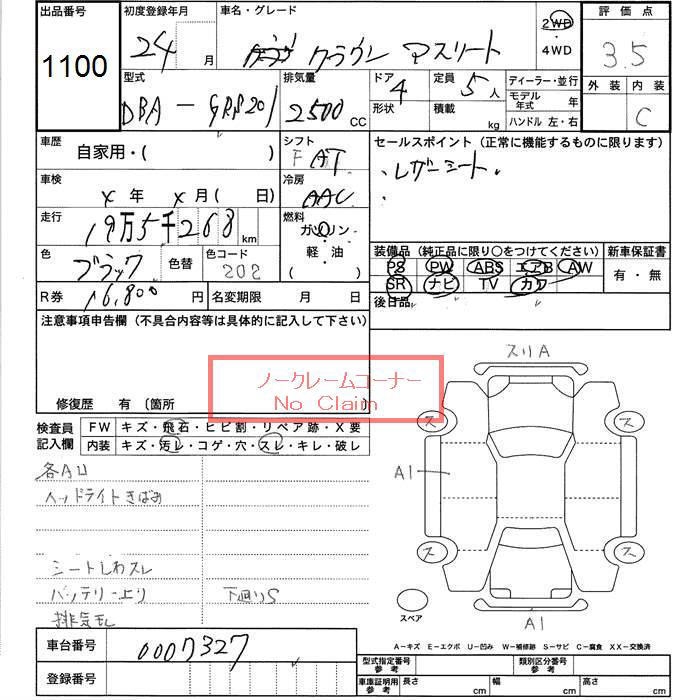 出品番号
1100
初度登録年月
24 月
車名・グレード
クラウン アスリート
2WD
・
4WD
評価点
3.5
外装 内装
C
型式
DBA － GRS201
排気量
2500 CC
ドア
4
形状
定員
5 人
積載
kg
ディーラー・並行
モデル年式 年
ハンドル 左・右
車歴
自家用・( )
シフト
F AT
セールスポイント（正常に機能するものに限ります）
・レザーシート・
・
車検
x 年 x 月( 日)
冷房
AAC
走行
19万5千268 km
燃料
ガソリン
軽・油
( )
色
ブラック
色替
色コード
202
装備品（純正品に限り○をつけてください）
PS PW ABS エアB AW
SR ナビ TV カワ
後日品
新車保証書
有・無
R券
16,800 円
名変期限 月 日
注意事項申告欄（不具合内容等は具体的に記入して下さい）
ノークレームコーナー
No Claim
修復歴 有 〔箇所
検査員
記入欄
FW キズ・飛石・ヒビ割・リペア跡・X要
内装 キズ・汚レ・コゲ・穴・スレ・キレ・破レ
各AU
ヘッドライトきばみ
シートしわスレ
バッテリー上り
下廻りS
排気モレ
スリA
ス
ス
A1
ス
ス
スペア
A1
A－キズ E－エクボ U－凹み W－補修跡 S－サビ C－腐食 XX－交換済
車台番号
0007327
登録番号
型式指定番号
参考
類別区分番号
参考
車庫証明用
参考
長さ cm
幅 cm
高さ cm